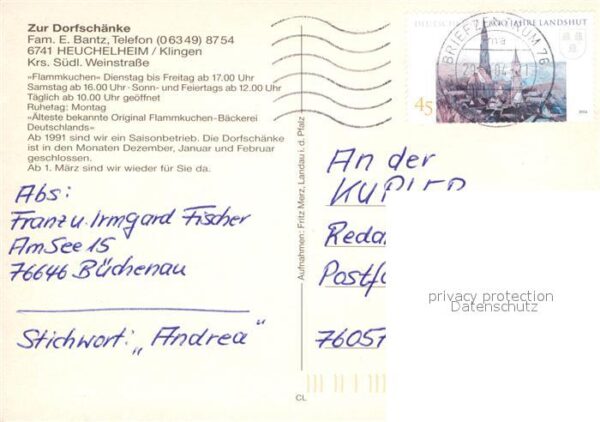 Zur Dorfschänke
Fam. E. Bantz, Telefon (0 63 49) 87 54
6741 HEUCHELHEIM / Klingen
Krs. Südl. Weinstraße
»Flammkuchen« Dienstag bis Freitag ab 17.00 Uhr
Samstag ab 16.00 Uhr · Sonn- und Feiertags ab 12.00 Uhr
Täglich ab 10.00 geöffnet
Ruhetag: Montag
»Älteste bekannte Original Flammkuchen-Bäckerei
Deutschlands«
Ab 1991 sind wir ein Saisonbetrieb. Die Dorfschänke
ist in den Monaten Dezember, Januar und Februar
geschlossen.
Ab 1. März sind wir wieder für Sie da.
Abs:
Franz u. Irmgard Fischer
Am See 15
76646 Büchenau
Stichwort: „Andrea“
Aufnahmen: Fritz Merz, Landau i. d. Pfalz
CL
800 JAHRE LANDSHUT
BRIEFZENTRUM 76
45
An der
KURIER
Reda
Postf
76051
privacy protection
Datenschutz